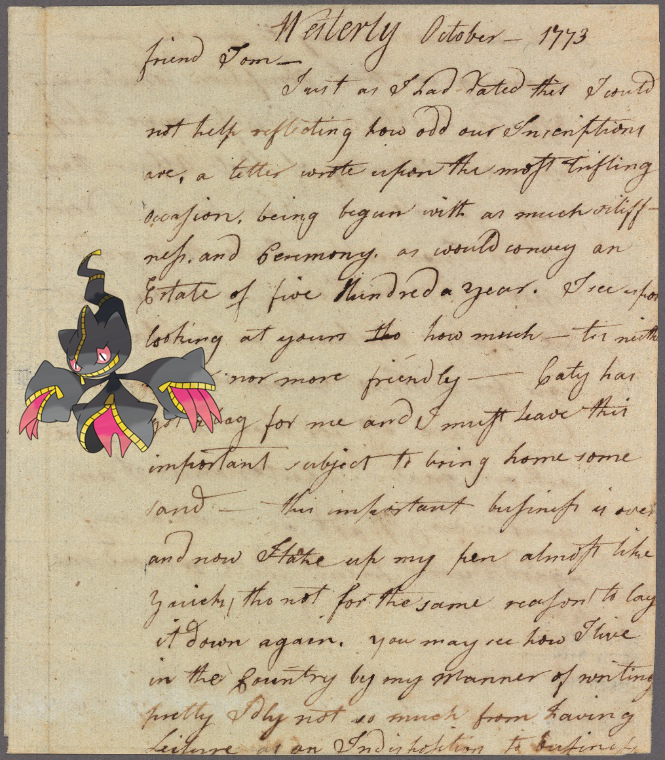 Westerly October — 1773
friend Tom —
Just as I had dated this I could
not help reflecting how odd our Inscriptions
are, a letter wrote upon the most trifling
occasion, being begun with as much stiff-
ness, and Ceremony, as would convey an
Estate of five Hundred a year. I see upon
looking at yours tho how much — tis
nor more friendly — Caty has
for me and I must leave this
important subject to bring home some
sand — this important business is over
and now I take up my pen almost like
tho not for the same reason to lay
it down again. you may see how I live
in the Country by my Manner of writing
pretty Idly not so much from having
Leisure as an Indisposition to business